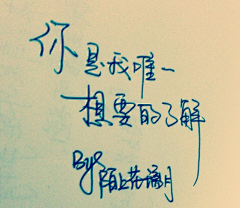 你是我唯一
想要的了解
By 陌上花满月